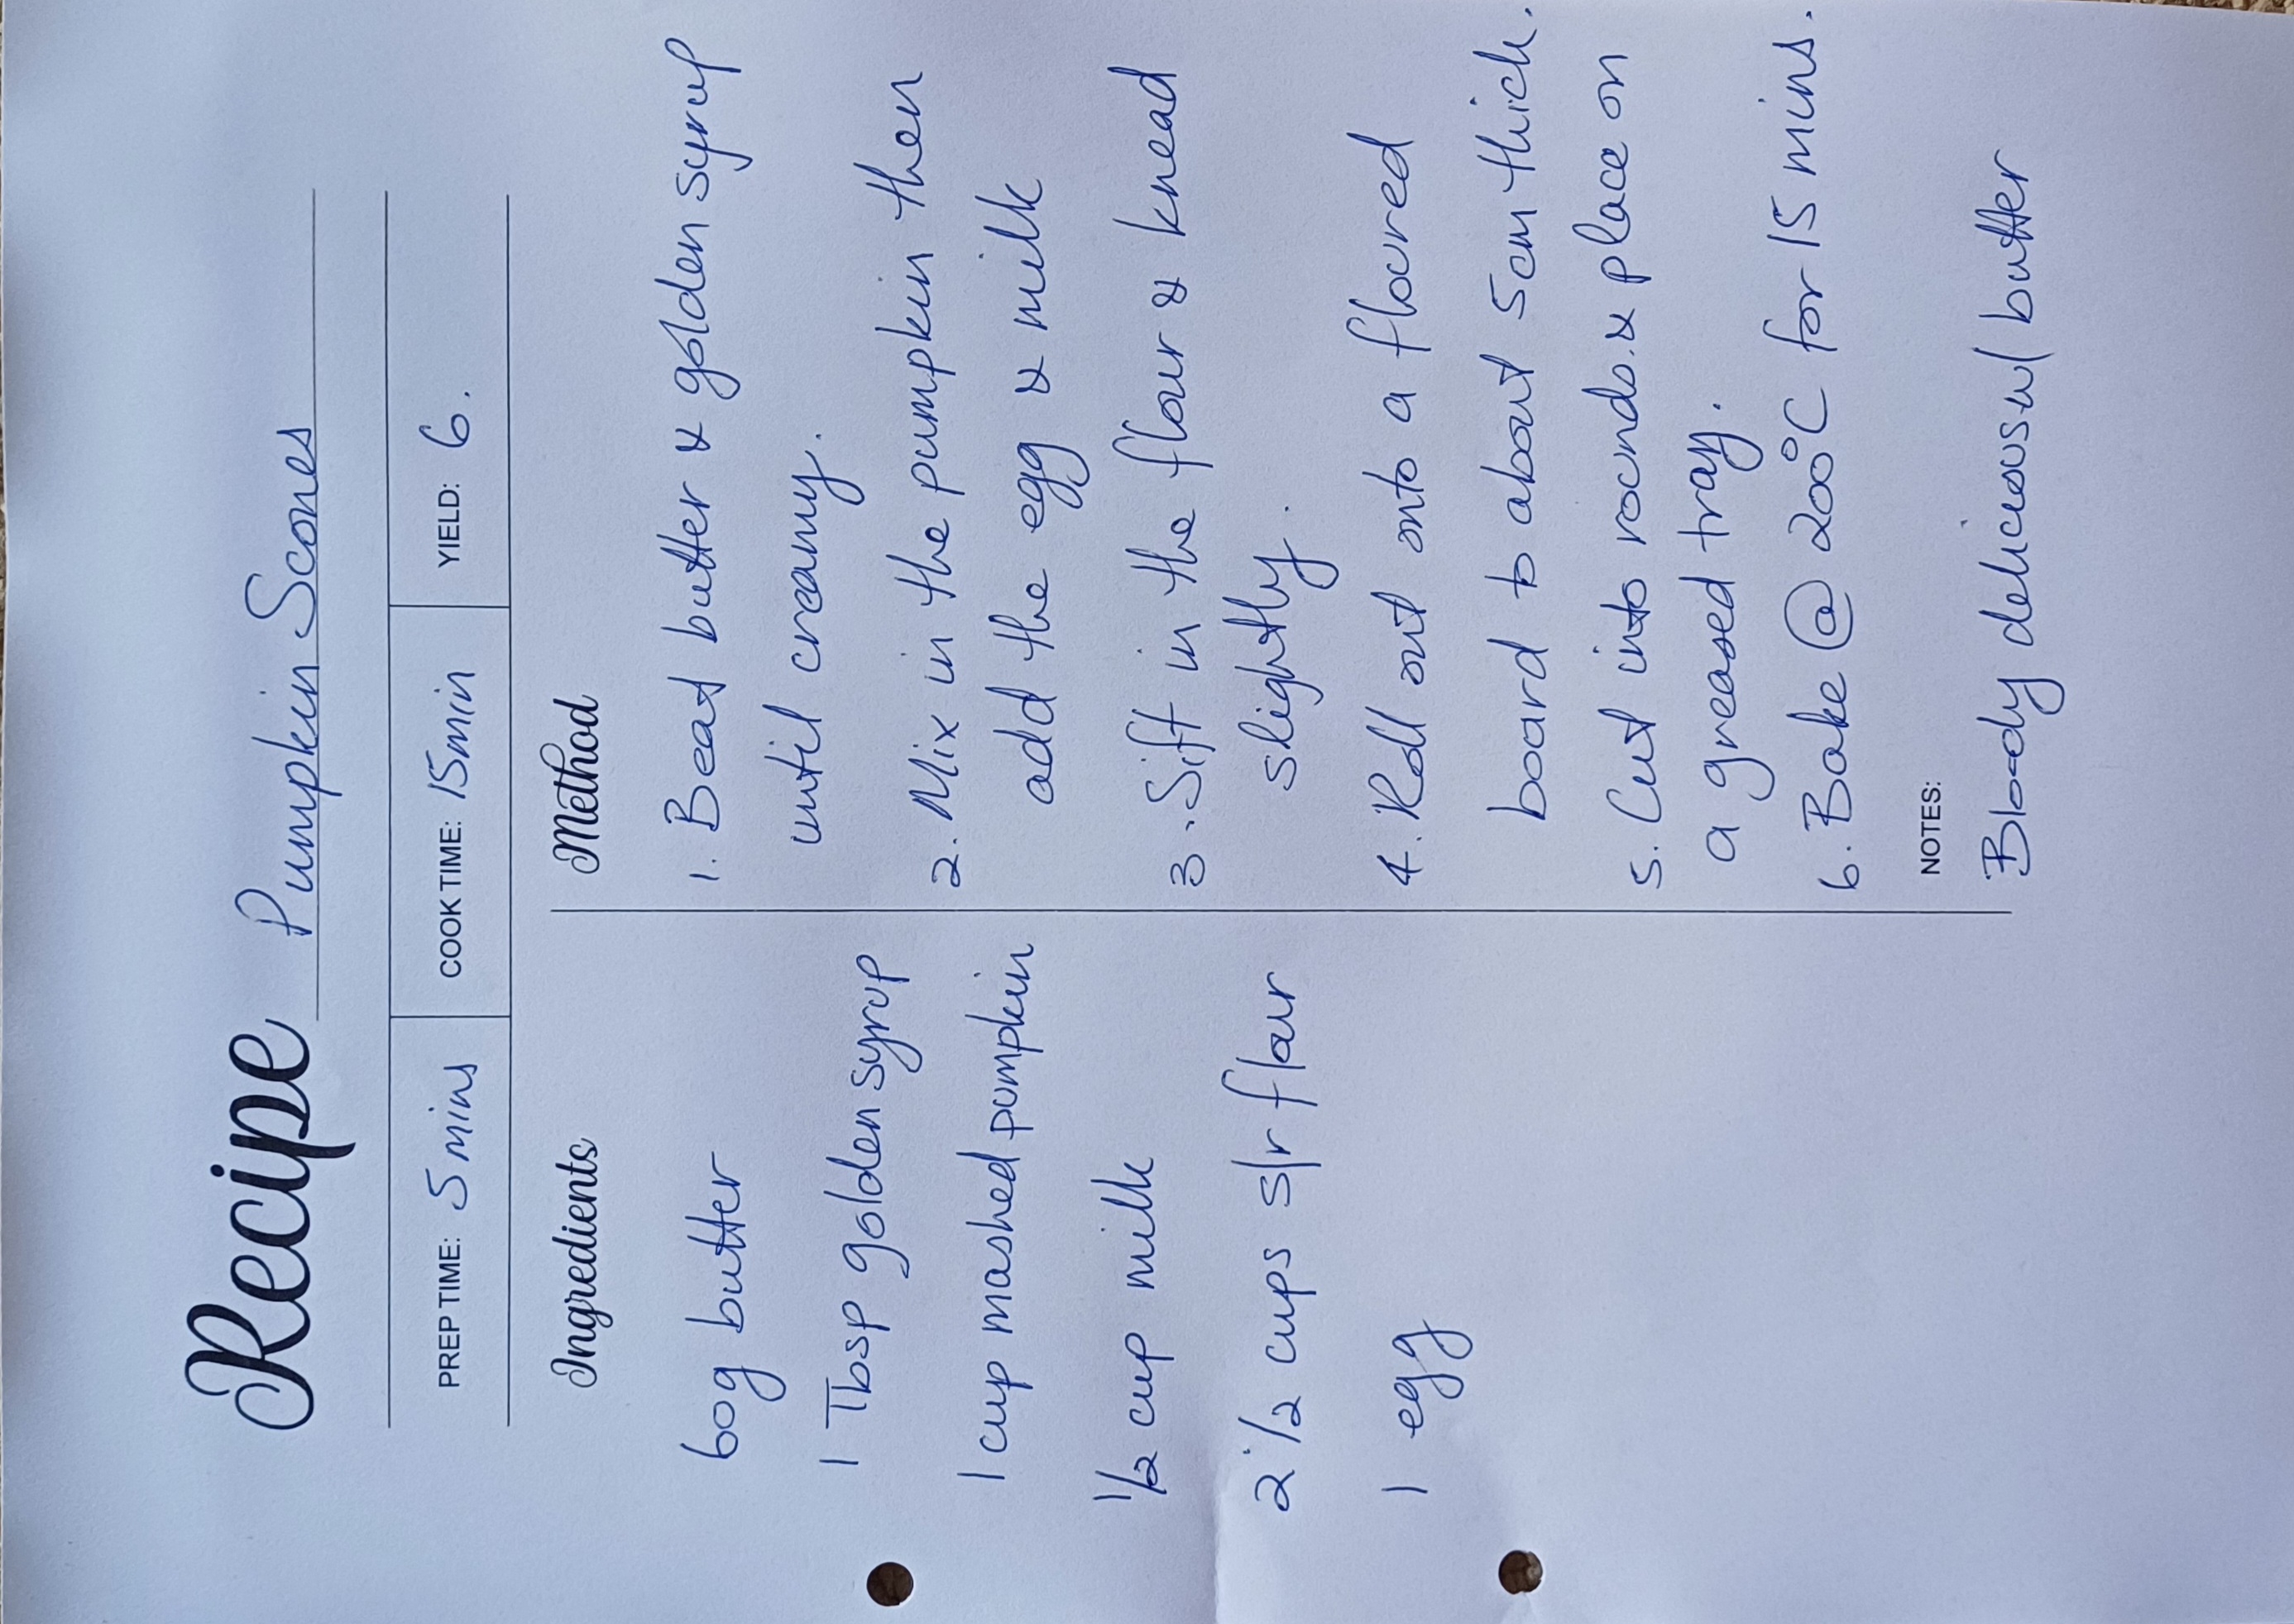 Recipe Pumpkin Scones
PREP TIME: 5 mins COOK TIME: 15min YIELD: 6.
Ingredients
60g butter
1 Tbsp golden syrup
1 cup mashed pumpkin
1/2 cup milk
2 1/2 cups s/r flour
1 egg
Method
1. Beat butter & golden syrup
until creamy.
2. Mix in the pumpkin then
add the egg & milk
3. Sift in the flour & knead
slightly.
4. Roll out onto a floured
board to about 5cm thick.
5. Cut into rounds. & place on
a greased tray.
6. Bake @ 200°C for 15 mins.
NOTES:
Bloody delicious w/ butter